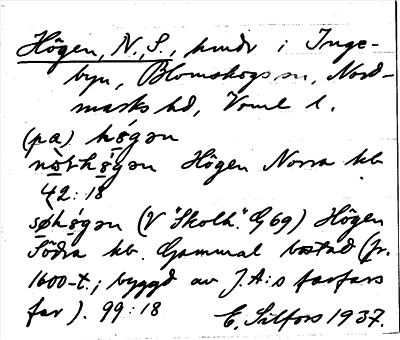 Högen, N., S., hmdr i Inge-
byn, Blomskogs sn, Nord-
marks hd, Vrml l.
(pa) hǿgən
nǿrhǿgən Högen Norra kb
42:18
søhǿgən (V "Skolh." G69) Högen
Södra kb. Gammal bostad (fr.
1600-t.; byggd av J.A:s farfars
far). 99:18
E. Silfors 1937.